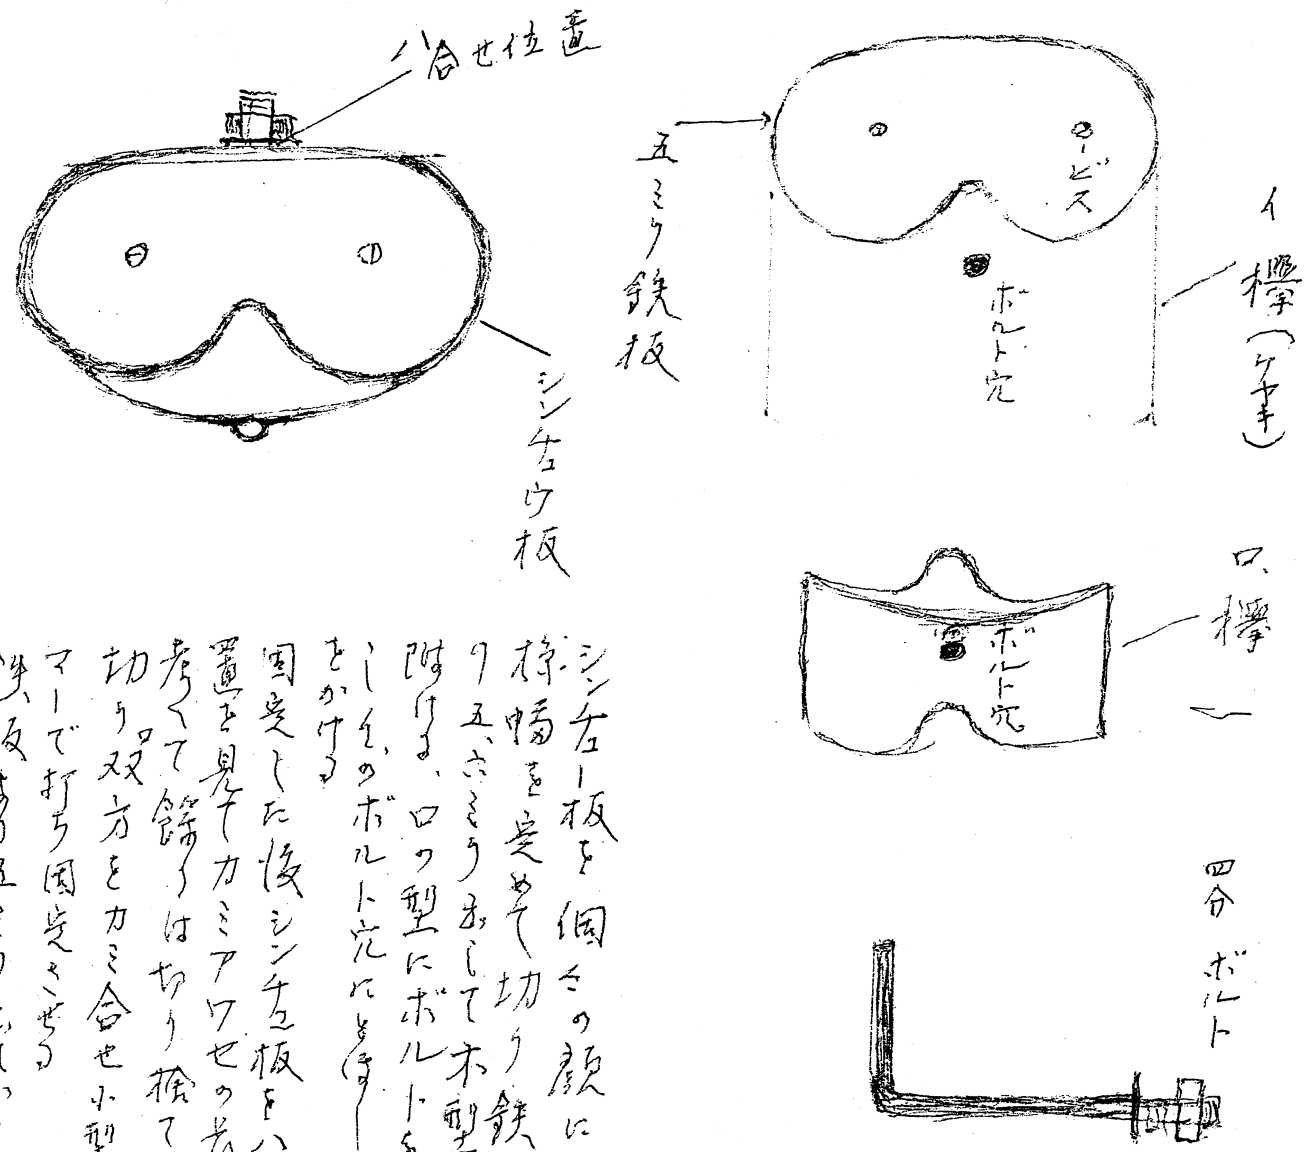 ハ合せ位置
五ミリ鉄板
ビス
ボルト穴
イ 欅(ケヤキ)
シンチュウ板
ロ、欅
ボルト穴
四分 ボルト
シンチュー板を個々の顔に
様幅を定めて切り鉄
り五、六ミリ出して木型
附ける、ロの型にボルトを
しそのボルト穴にとほし
をかける
固定した後シンチュ板をハ
置を見てカミアワセの
考へて餘りは切り捨て
切り双方をカミ合せ小型
マーで打ち固定させる